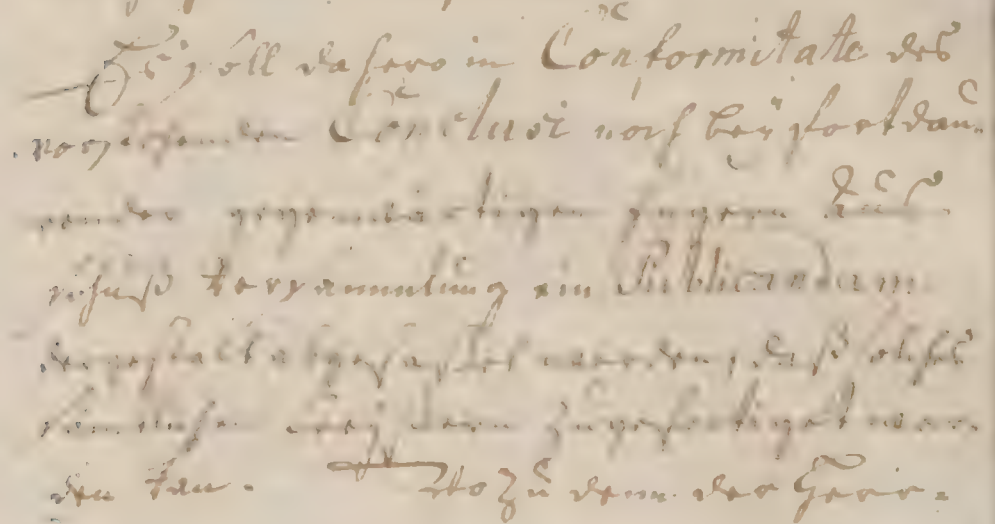 Es soll dahero in Conformitate des
vorstehenden Conclusi noch beÿ fortdau-
render gegenwärtigen engern Auß
schuß Versammlung ein Publicandum
dergestalt abgefasset werden, daß solches
zugefertiget wer-
den kan. Wozu denn der Herr